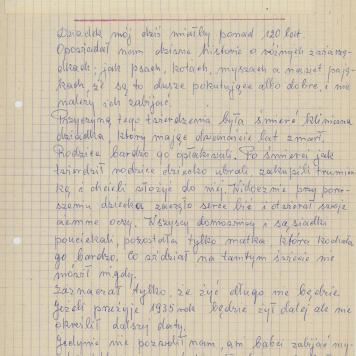 Dziadek mój dziś miałby ponad 120 lat.
Opowiadał nam dziwne historie o różnych zwierzą-
tkach: jak psach, kotach, myszach a nawet pają-
kach, że są to dusze pokutujące albo dobre, i nie
należy ich zabijać.
Przyczyną tego twierdzenia była śmierć kliniczna
dziadka, który mając dwanaście lat zmarł.
Rodzice bardzo go opłakiwali. Po śmierci jak
twierdził rodzice dziecko ubrali, zakupili trumien-
kę i chcieli włożyć do niej. Widocznie przy poru-
szeniu dziecka zaczęło serce bić i otworzył swoje
ciemne oczy. Wszyscy domownicy i sąsiadki
pouciekali, pozostała tylko matka, która kochała
go bardzo. Co widział na tamtym świecie nie
mówił nigdy.
Zaznaczał tylko, że żyć długo nie będzie
Jeżeli przeżyje 1935 rok będzie żył dalej ale nie
określił dalszej daty.
Jedynie nie pozwolił nam, am babci zabijać my-